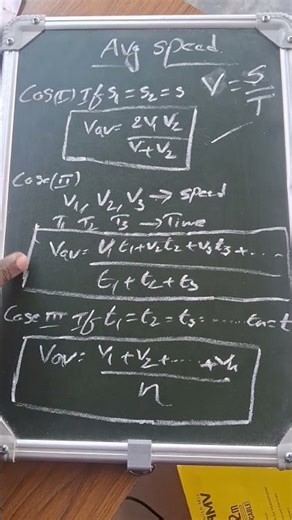 Avg speed
V = S/T
Case(I) If s₁ = s₂ = s
Vav = 2V₁V₂/V₁+V₂
Case(II)
V₁, V₂, V₃ → speed
T₁ T₂ T₃ → Time
Vav = V₁t₁+V₂t₂+V₃t₃+....
t₁+t₂+t₃
Case III If t₁ = t₂ = t₃ = ...... tn = t
Vav = V₁+V₂+......+Vn
n